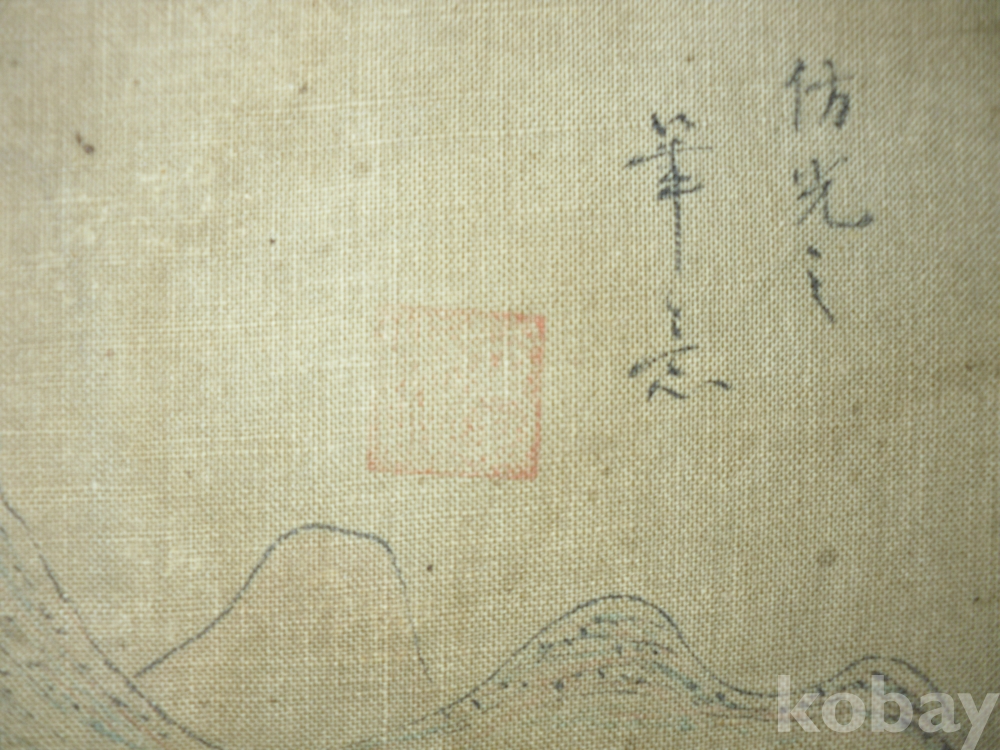 仿光之
筆之意
kobay